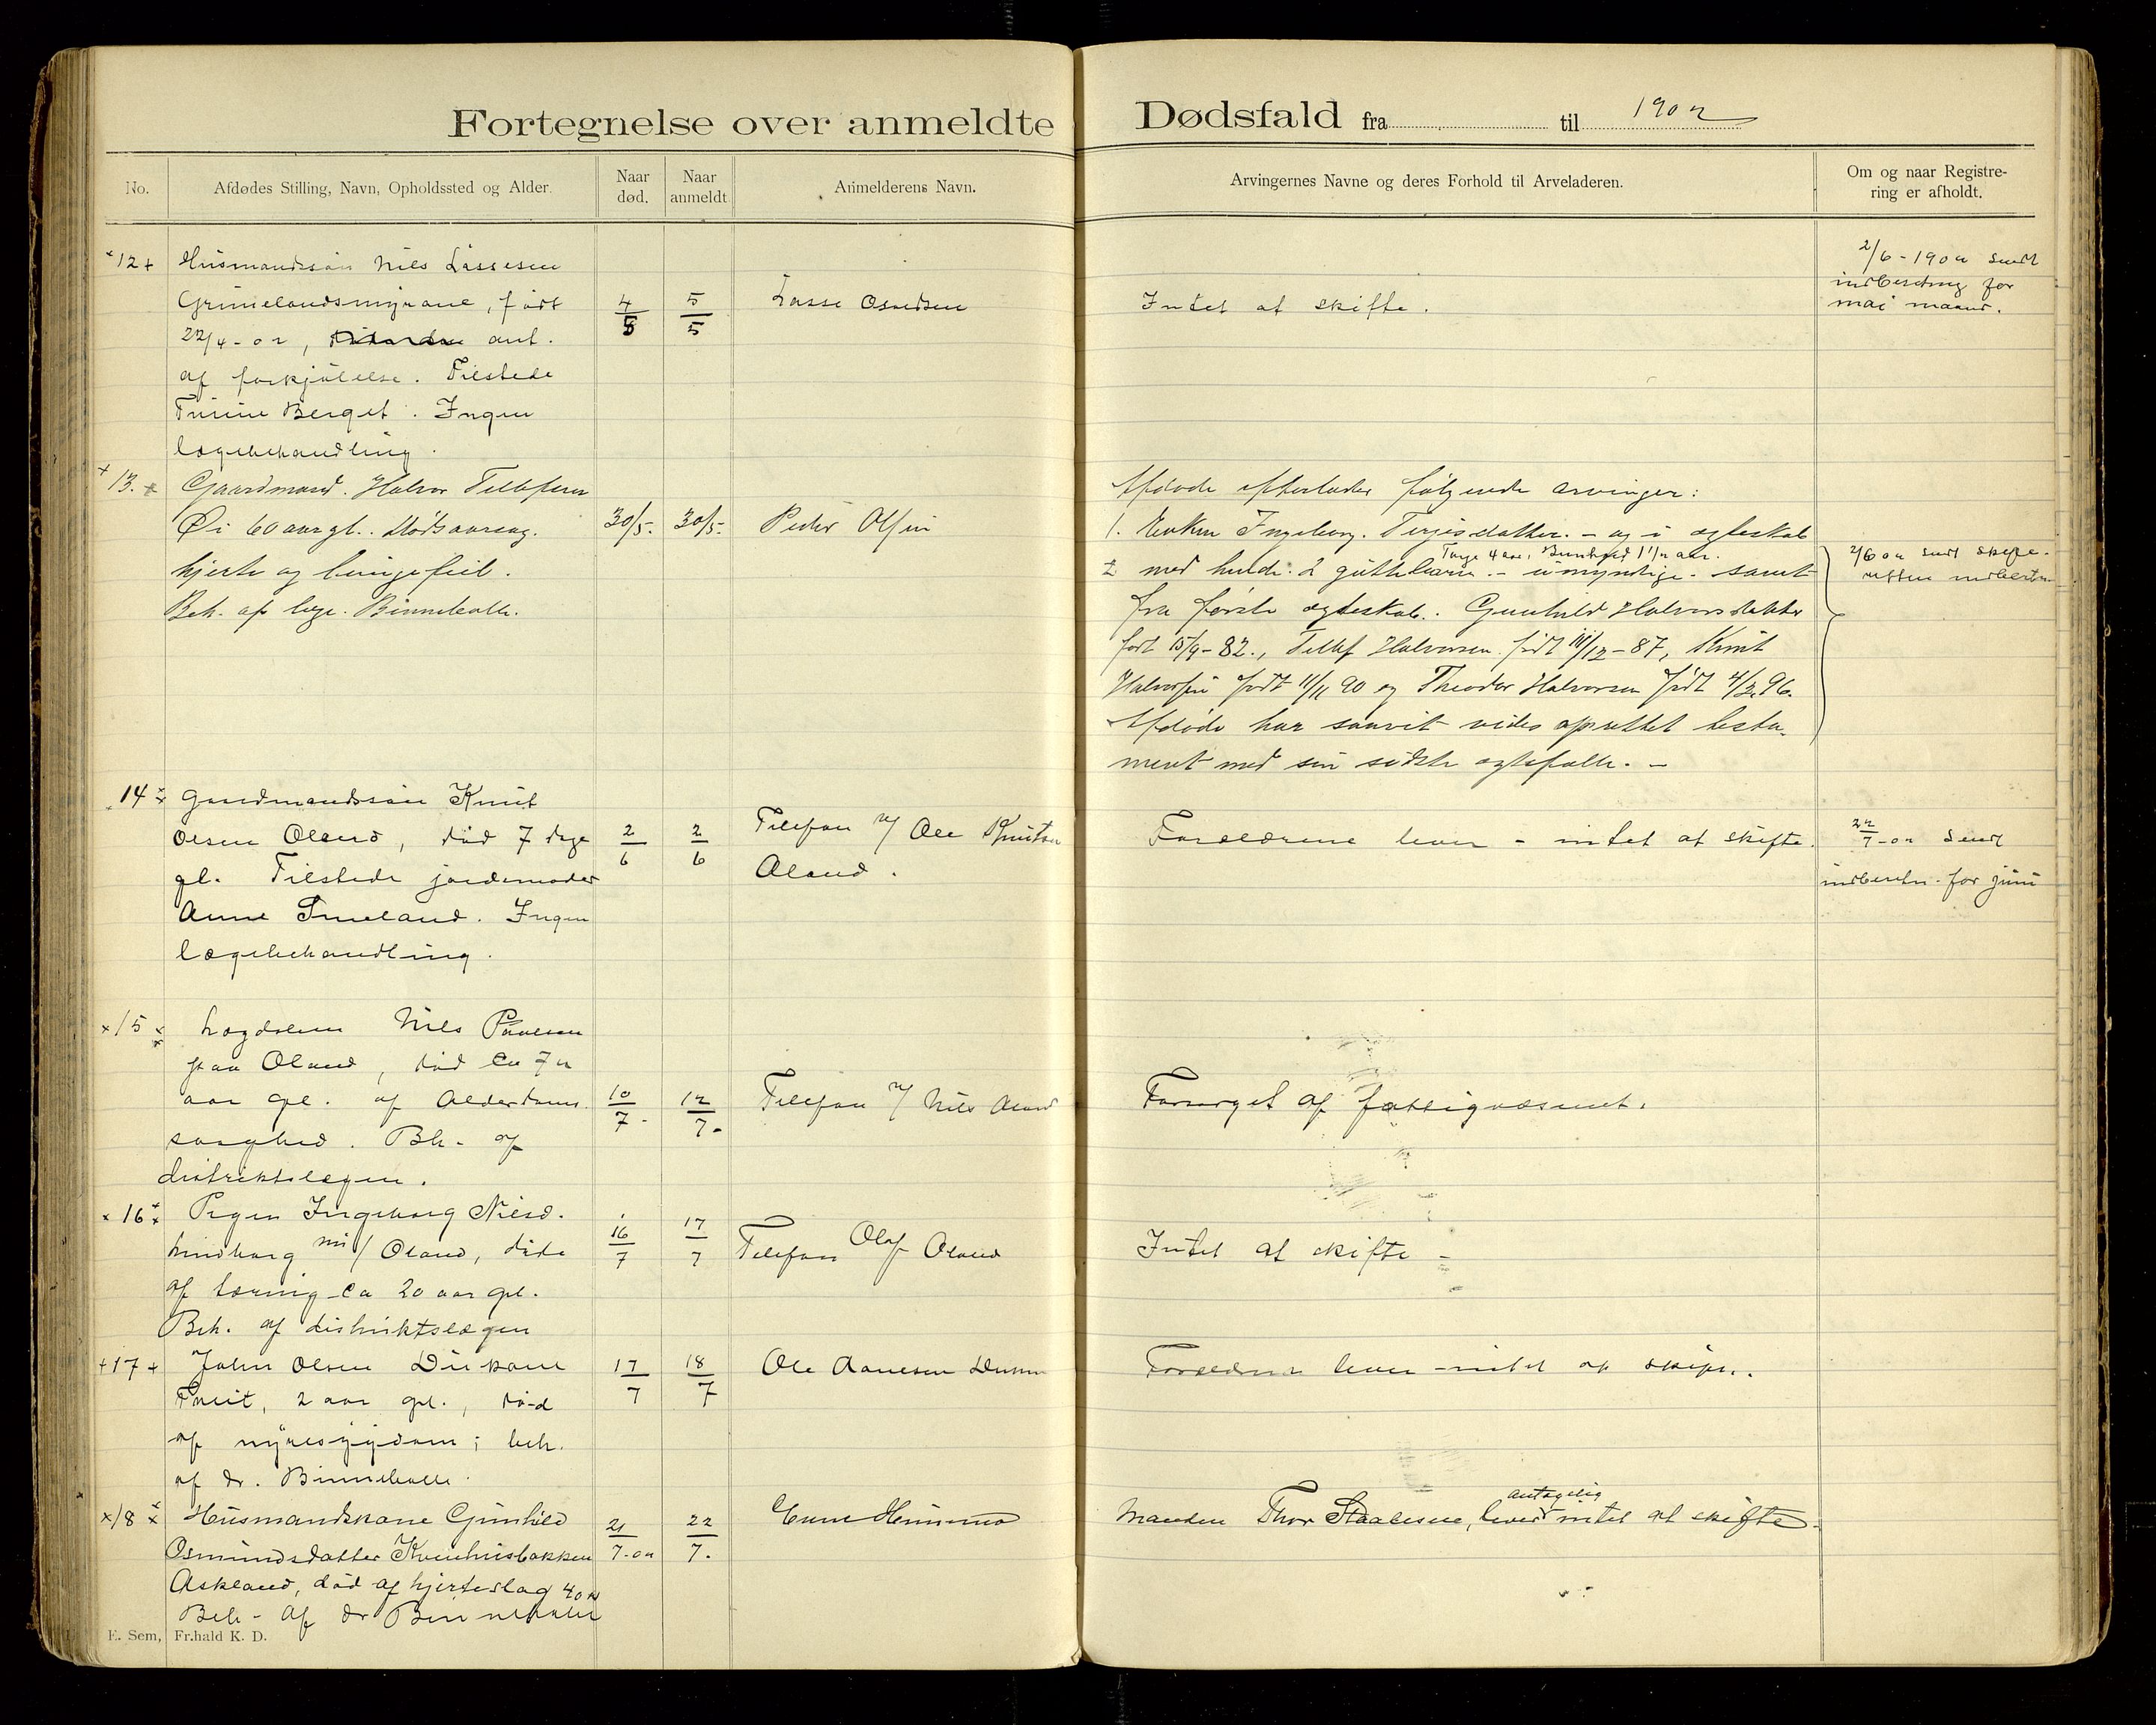 Fortegnelse over anmeldte Dødsfald fra til 1902
No.
Afdødes Stilling, Navn, Opholdssted og Alder.
Naar død.
Naar anmeldt
Anmelderens Navn.
Arvingernes Navne og deres Forhold til Arveladeren.
Om og naar Registrering er afholdt.
12 Husmandssøn Nils Lassesen
Grimelandsmyrane, født
22/4-02, ant.
af forkjølelse. Tilstede
Berget. Ingen
lægebehandling.
4/5
5/5
Lasse Osuldsen
Intet at skifte.
2/6-1902 sendt
indberetning for
mai maaned.
13. Gaardmand. Halvor Tellefsen
Øi 60 aar gl.. Dødsaarsag.
hjerte og lungefeil.
Beh. af læge. Binneballe.
30/5.
30/5.
Peder Olsen
Afdøde efterlader følgende arvinger:
1. Enken Ingeborg. Terjesdatter. - og i ægteskab
Tarje 4 aar, Gunhild 1 1/2 aar.
2 med hende. 2 - umyndige. samt
fra første ægteskab. Gunhild Halvorsdatter
født 15/9-82., Tellef Halvorsen. født /12-87, Knut
Halvorsen født 11/11 90 og Theodor Halvorsen født 4/2.96.
Afdøde har saavit vides oprettet testa-
ment med sin sidste ægtefælle. -
2/6 02 sendt skifte-
retten indberetn
14 Gaardmandssøn Knut
Olsen Oland, død 7 dage
gl. Tilstede jordemoder
Anne Smeland. Ingen
lægebehandling.
2/6
2/6
Telefon v/ Ole Knutsen
Aland.
Forældrene lever - intet at skifte.
22/7-02 sendt
indberetn. for juni
15 Lægdslem Nils Paulsen
paa Oland, død ca 72
aar gl. af Alderdoms-
svaghed. Bh. af
distriktslægen.
10/7-
12/7-
Telefon v/ Nils Aland
Forsørget af fattigvæsenet.
16 Pigen Ingeborg Nilsd.
Oland, døde
af tæring ca 20 aar gl.
Beh. af distriktslægen
16/7
17/7
Telefon Olaf Oland
Intet at skifte -
17 John Olsen
2 aar gl., død
af nyresygdom; beh.
af dr. Binneballe.
17/7
18/7
Ole Aanesen
Forældrene lever - intet at skifte.
18 Husmandskone Gunhild
Osmundsdatter Kvenhusbakken
Askland, død af hjerteslag 40
Beh - af dr Binneballe
21/7-02
22/7.
antagelig
Manden Thor Staalesen, lever intet at skifte.
E. Sem, Fr.hald K. D.